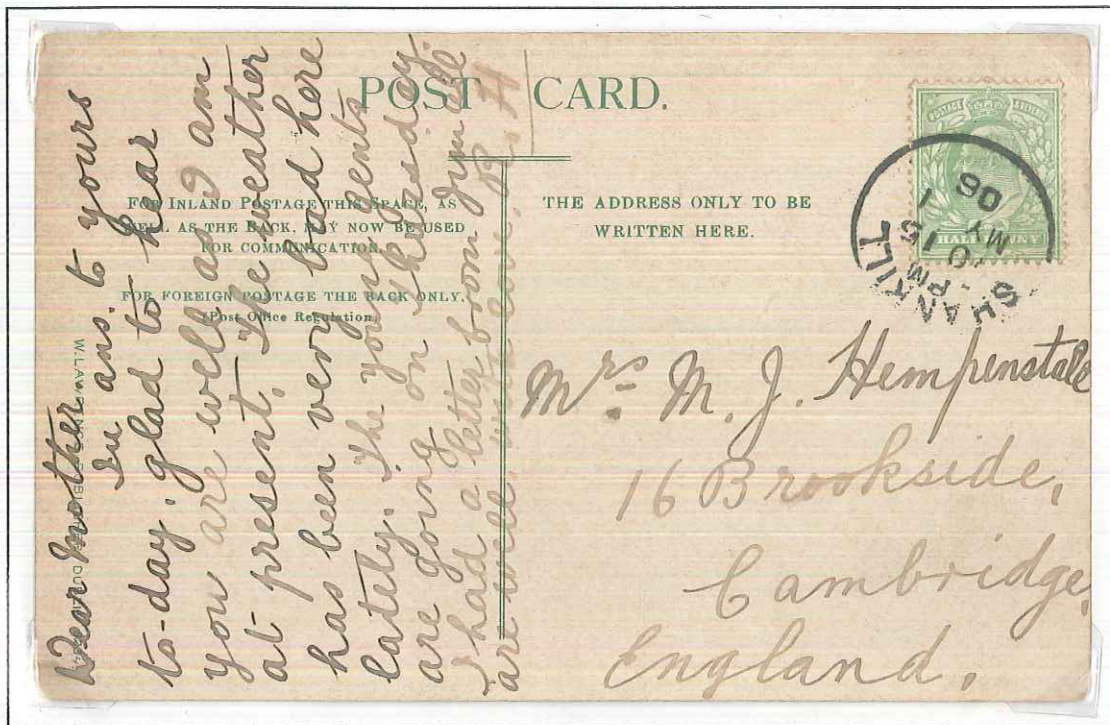 POST CARD.
FOR INLAND POSTAGE THIS SPACE, AS
WELL AS THE BACK, MAY NOW BE USED
FOR COMMUNICATION.
FOR FOREIGN POSTAGE THE BACK ONLY.
(Post Office Regulation)
THE ADDRESS ONLY TO BE
WRITTEN HERE.
POSTAGE REVENUE
HALFPENNY
SHANKILL
7 15 PM
MY 1
06
Dear Mother
In ans. to yours
to-day, glad to hear
you are well as I am
at present. The weather
has been very bad here
lately. The young gents
are going on Thursday.
I had a letter from
are well. With love. R. H
Mrs. M. J. Hempenstall
16 Brookside,
Cambridge,
England.
W. LAWRENCE, PUBLISHER, DUBLIN